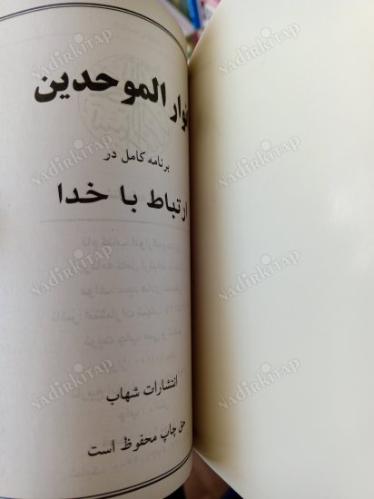 نوار الموحدین
برنامه کامل در
ارتباط با خدا
انتشارات شهاب
حق چاپ محفوظ است
NADİRKİTAP